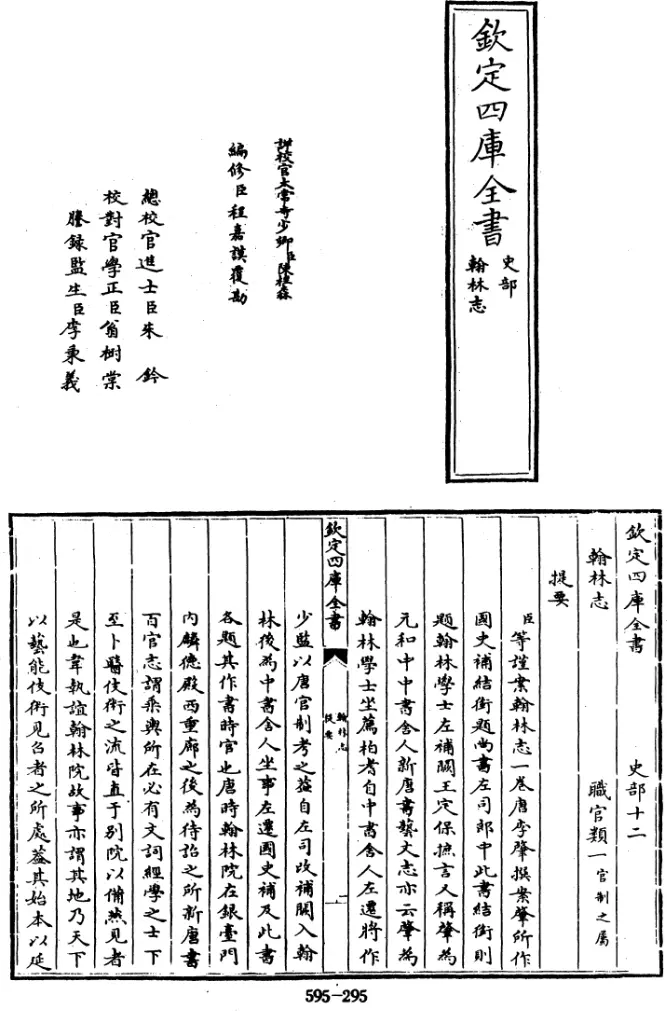 欽定四庫全書
史部
翰林志
詳校官太常寺少卿臣陳桂森
編修臣程嘉謨覆勘
總校官進士臣朱鈐
校對官學正臣翁樹棠
謄錄監生臣李秉義
欽定四庫全書 史部十二
翰林志 職官類一官制之屬
提要
臣等謹案翰林志一卷唐李肇撰案肇所作
國史補結銜題尚書左司郎中此書結銜則
題翰林學士左補闕王定保摭言又稱肇為
元和中中書舍人新唐書藝文志亦云肇為
翰林學士坐薦柏耆自中書舍人左遷將作
欽定四庫全書
翰林志
提要
一
少監以唐官制考之葢自左司改補闕入翰
林後為中書舍人坐事左遷國史補及此書
各題其作書時官也唐時翰林院在銀臺門
內麟德殿西重廊之後為待詔之所新唐書
百官志謂乘輿所在必有文詞經學之士下
至卜醫伎術之流皆直于別院以備燕見者
是也韋執誼翰林院故事亦謂其地乃天下
以藝能伎術見召者之所處葢其始本以延
595-295